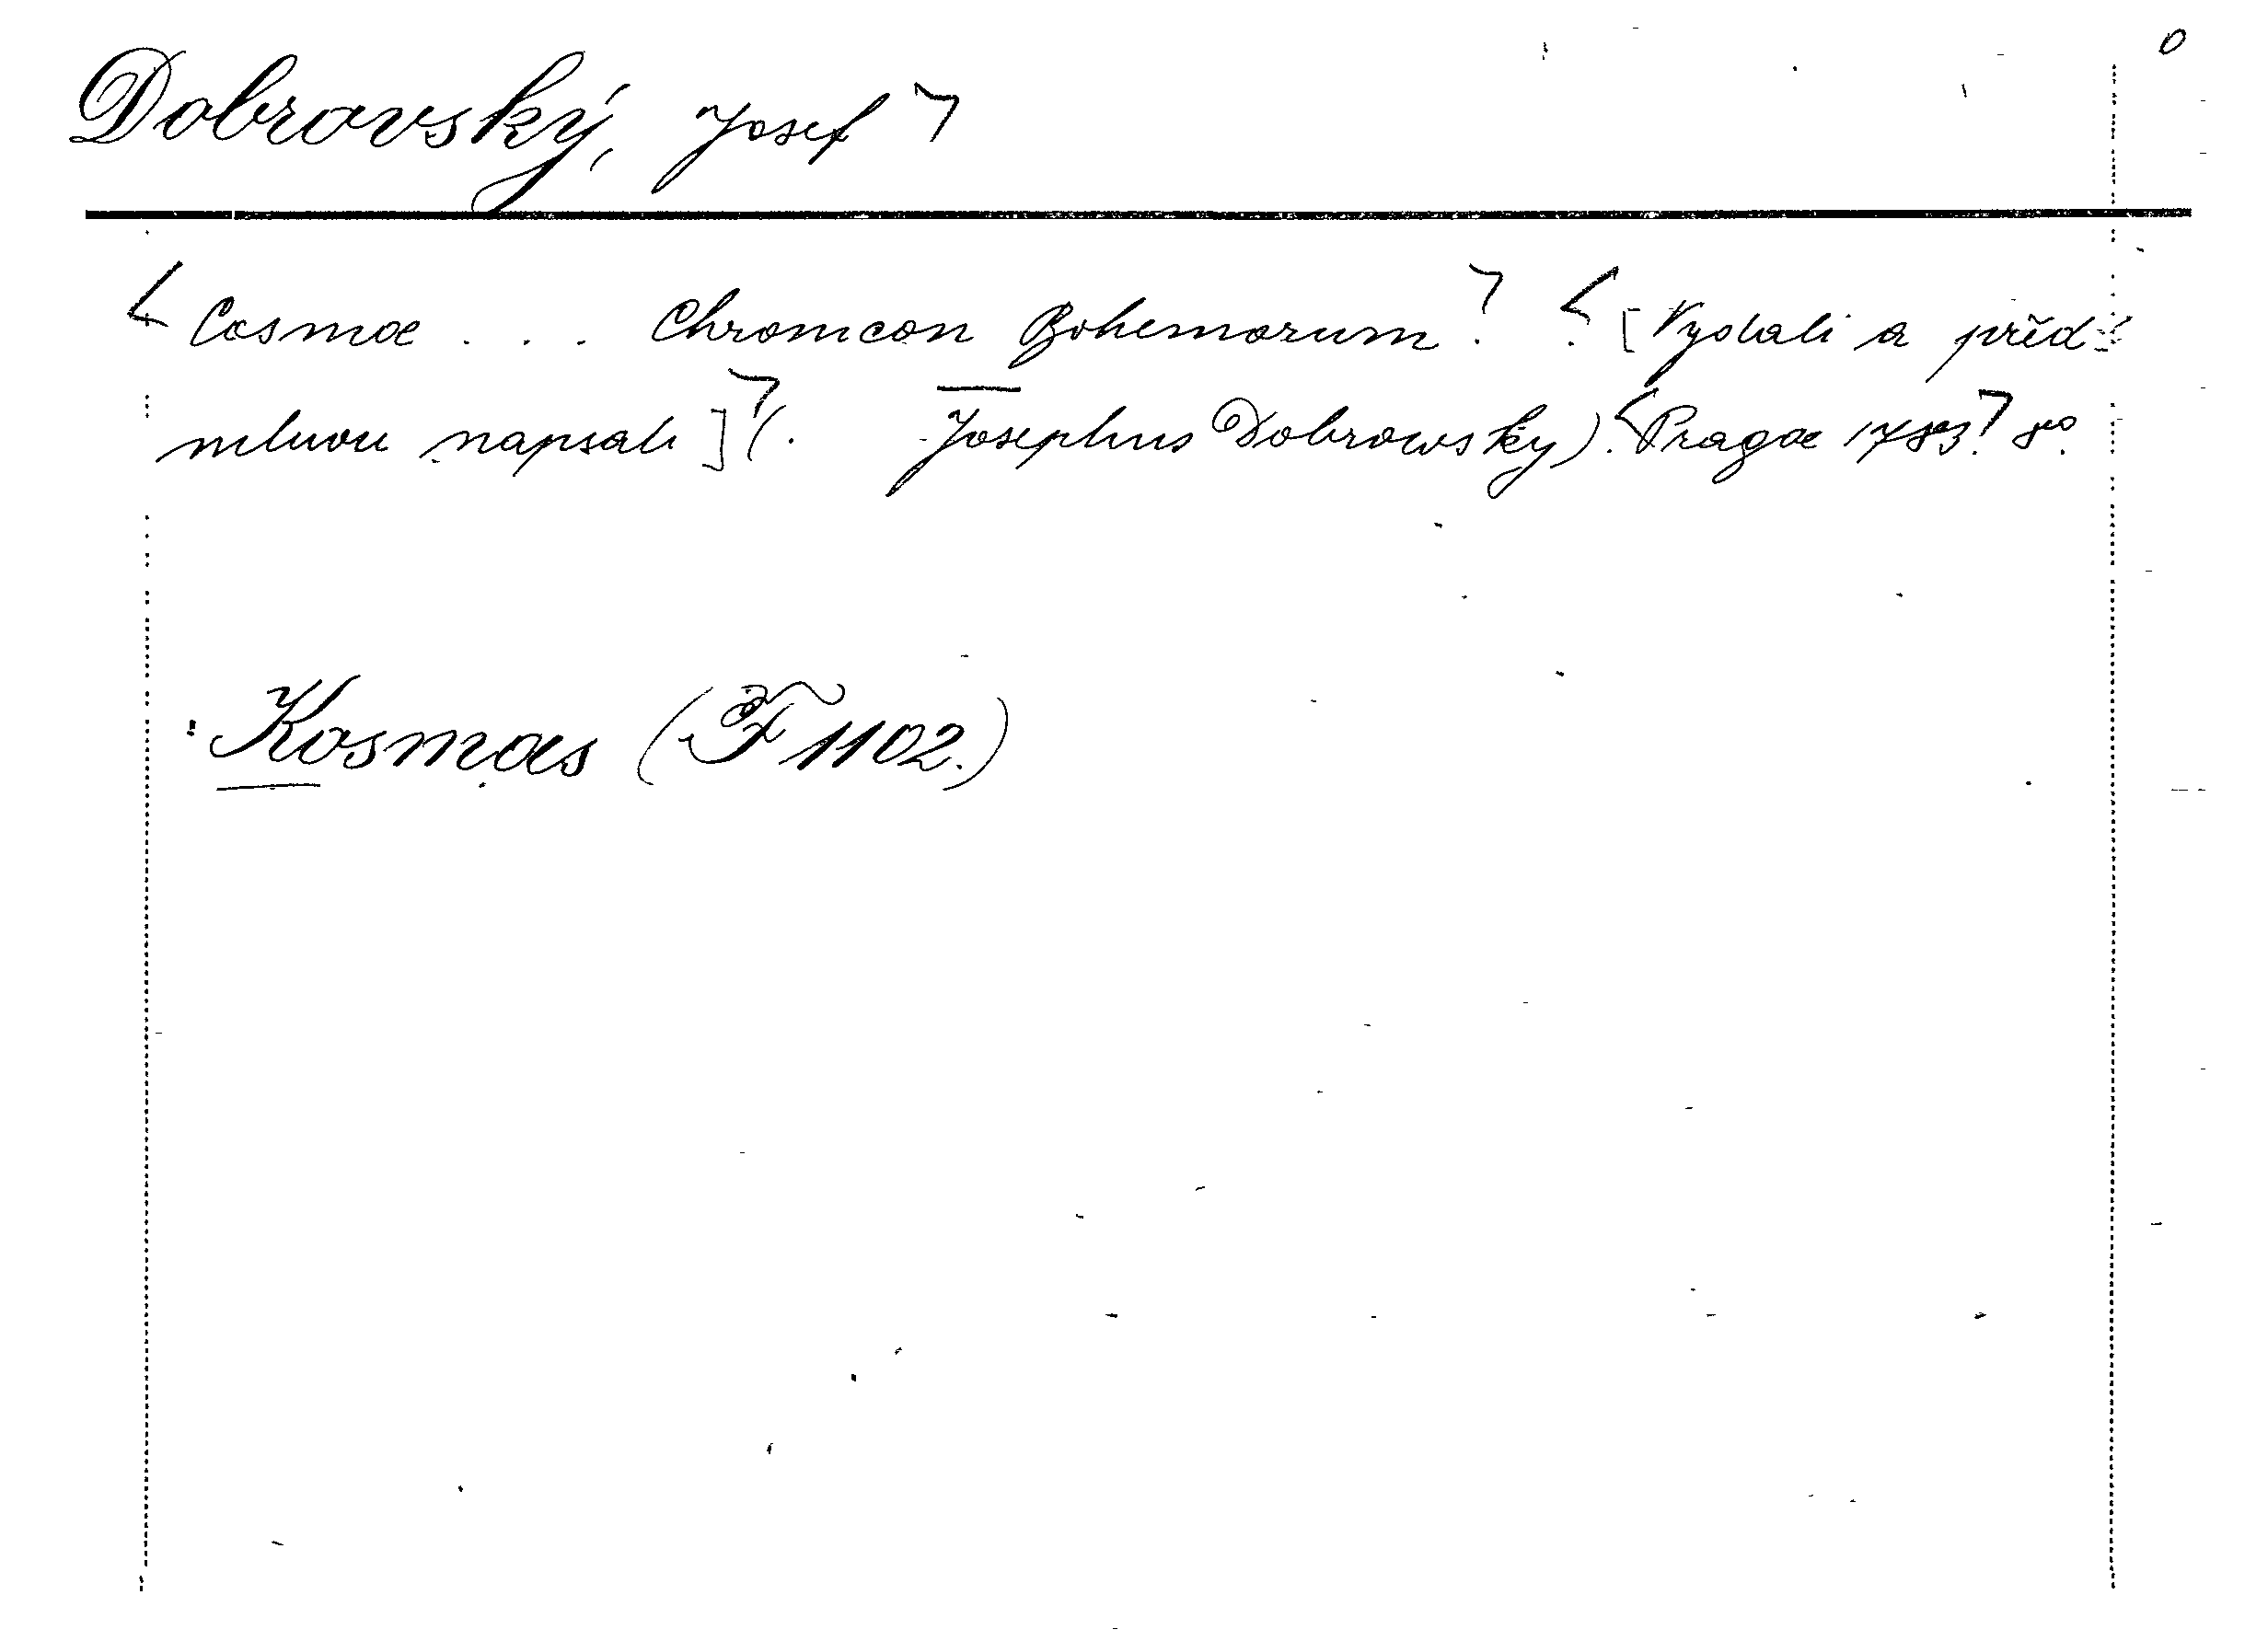 0
Dobrovský, Josef
Cosmæ . . . Chronicon Bohemorum. . [Vydali a před-
mluvu napsali] (. Josephus Dobrowsky). Pragæ 1783. 8º.
Kosmas (1102.)